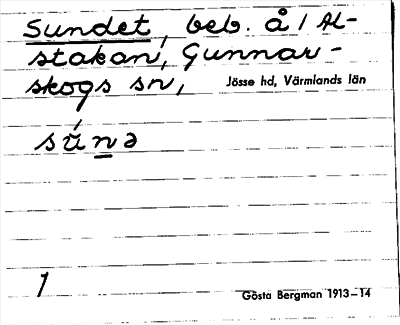 Sundet, beb. å 1 Al-
stakan, Gunnar-
skogs sn, Jösse hd, Värmlands län
sú̆n̲ə
1 Gösta Bergman 1913–14